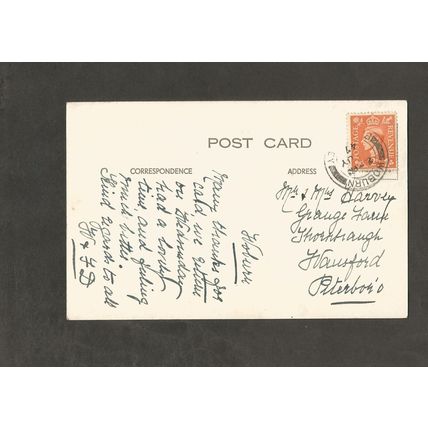 POST CARD
CORRESPONDENCE
ADDRESS
POSTAGE
REVENUE
WOBURN
Woburn
Many thanks for
card we return
on Wednesday
had a lovely
time and feeling
much better
Kind regards to all
Mr & Mrs Harvey
Grange Farm
Thornhaugh
Wansford
Peterboro